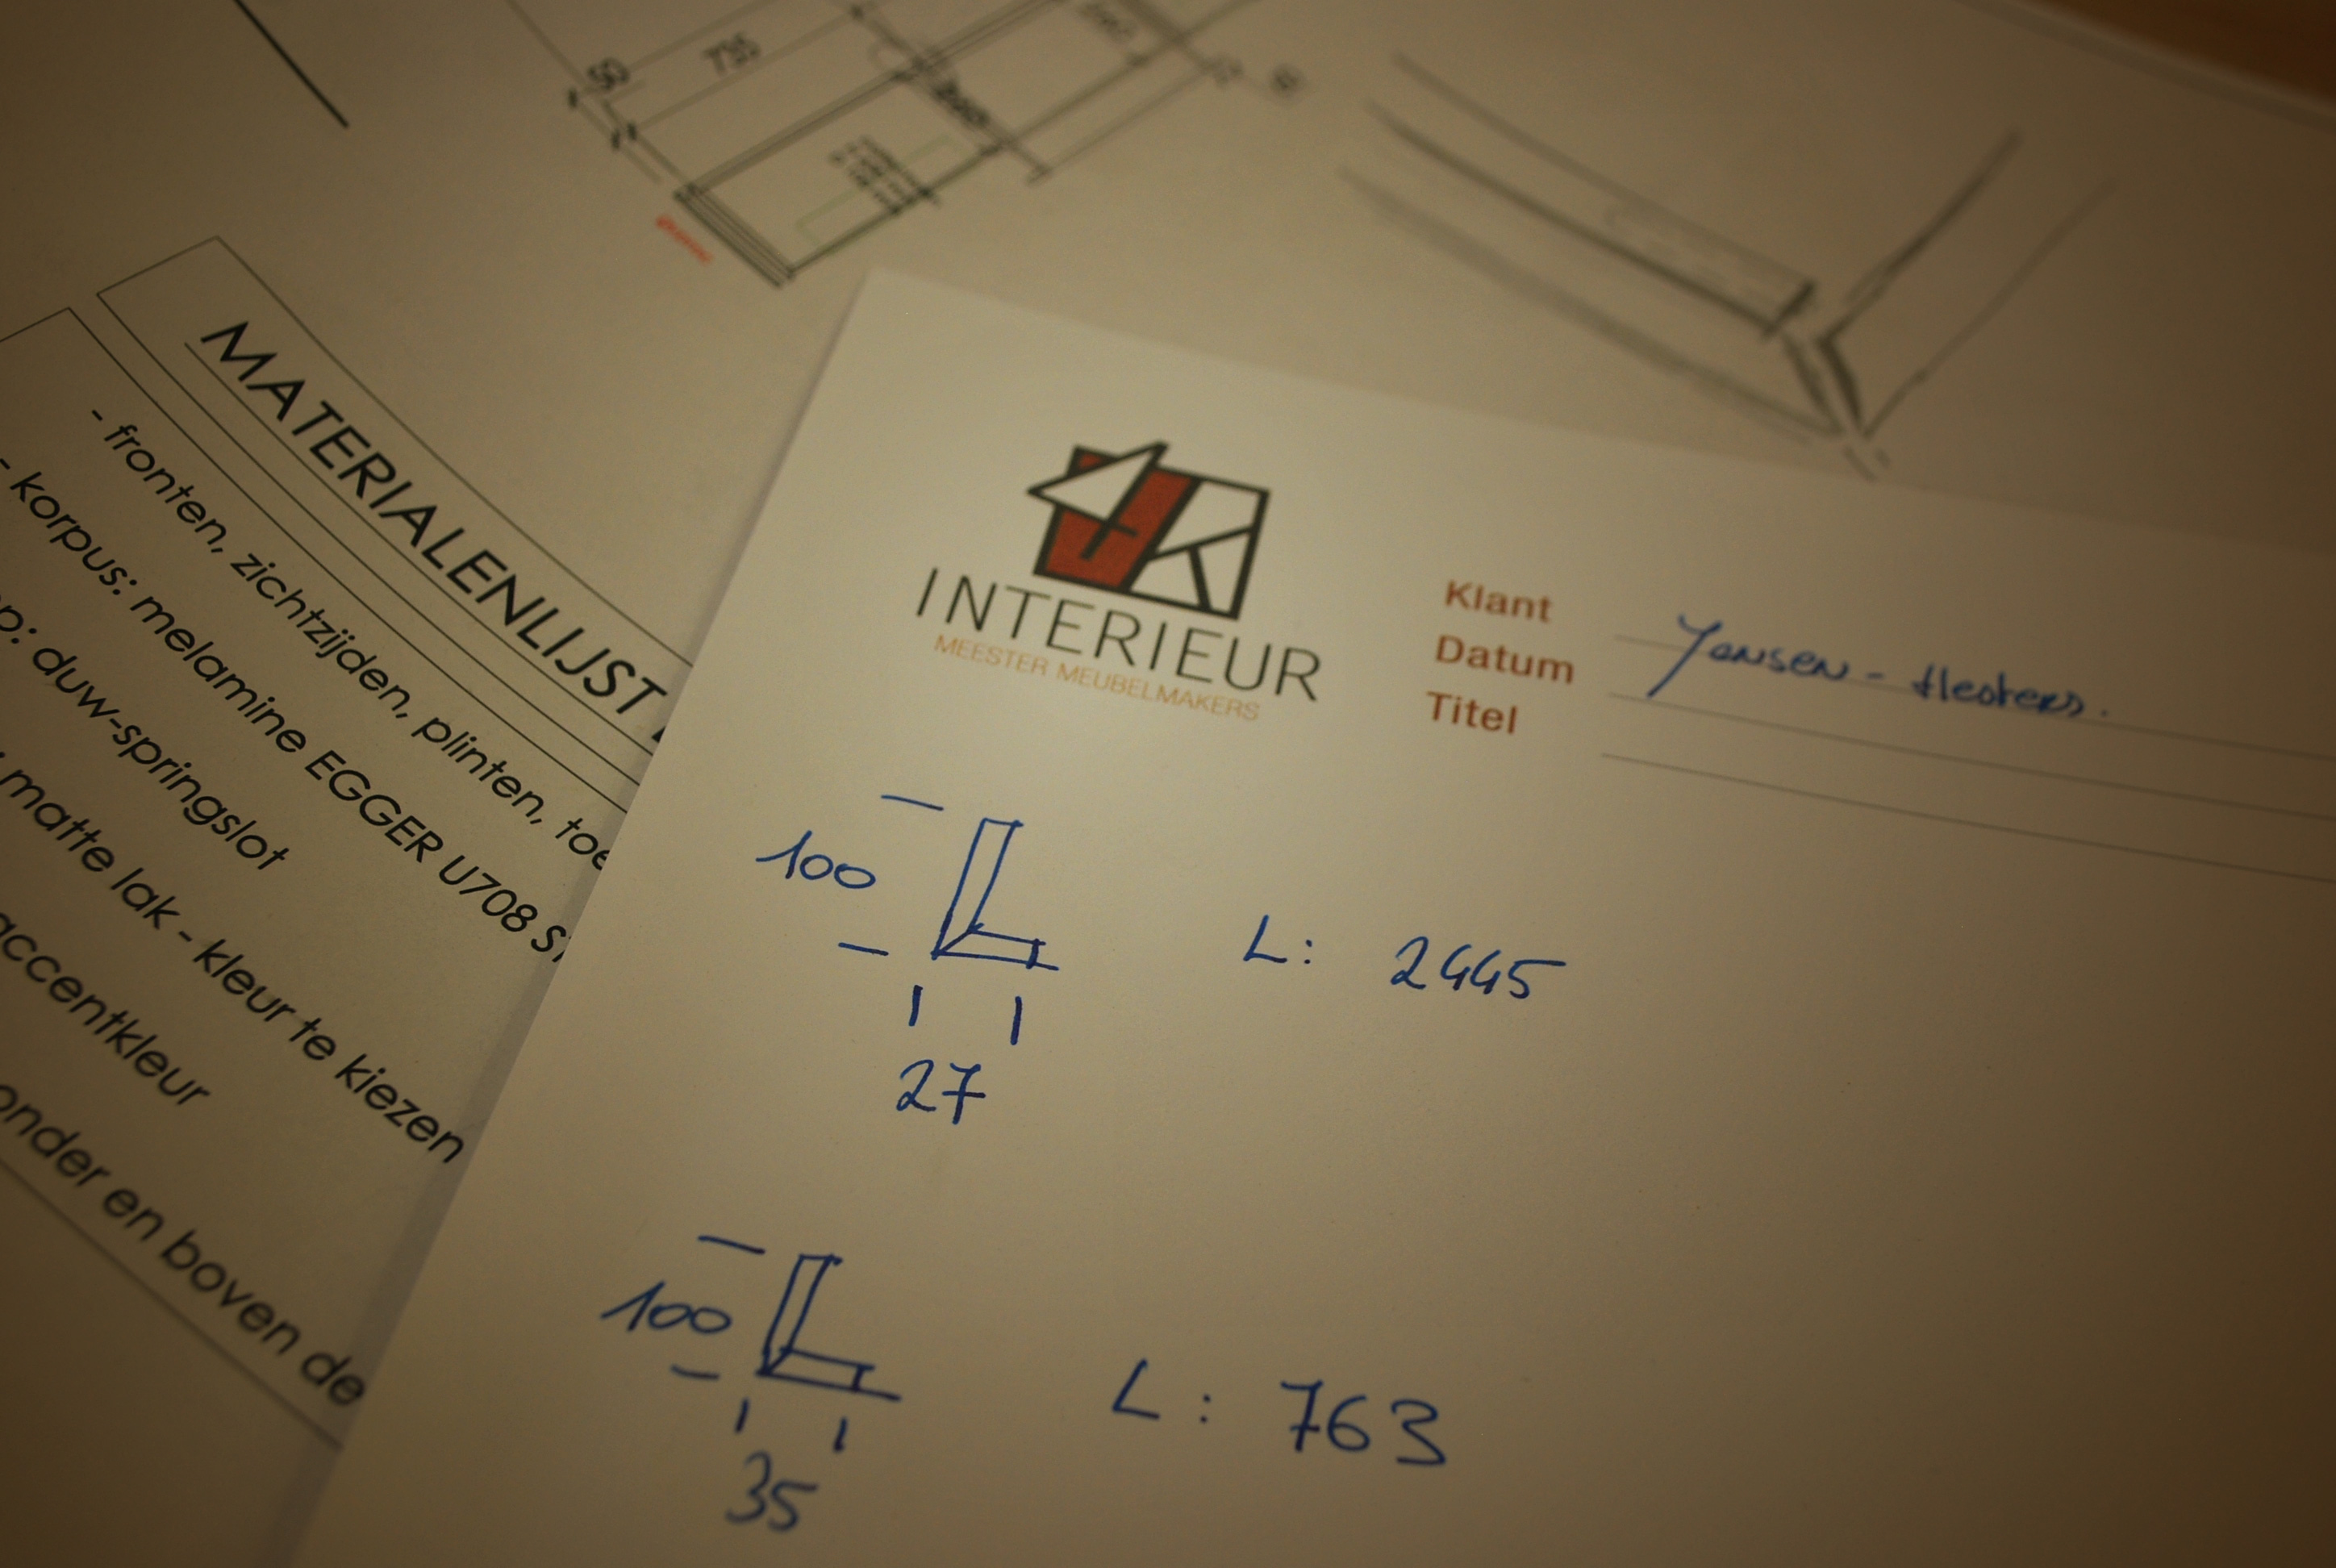 50
735
MATERIALENLIJST
- fronten, zichtzijden, plinten, toe
- korpus: melamine EGGER U708 S
p: duw-springslot
matte lak - kleur te kiezen
accentkleur
onder en boven de
INTERIEUR
MEESTER MEUBELMAKERS
Klant
Datum
Titel
Jansen -
100
27
L: 2445
100
35
L: 763